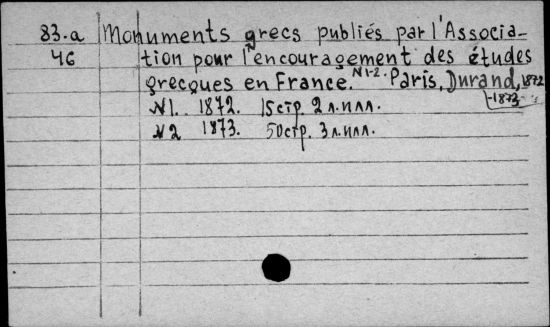 83.a Monuments grecs publiés par l'Associa-
46 tion pour l'encouragement des études
grecques en France. N1-2. Paris, Durand, 1872
-1873
N1. 1872. 15стр. 2 л.илл.
N2 1873. 50стр. 3 л.илл.